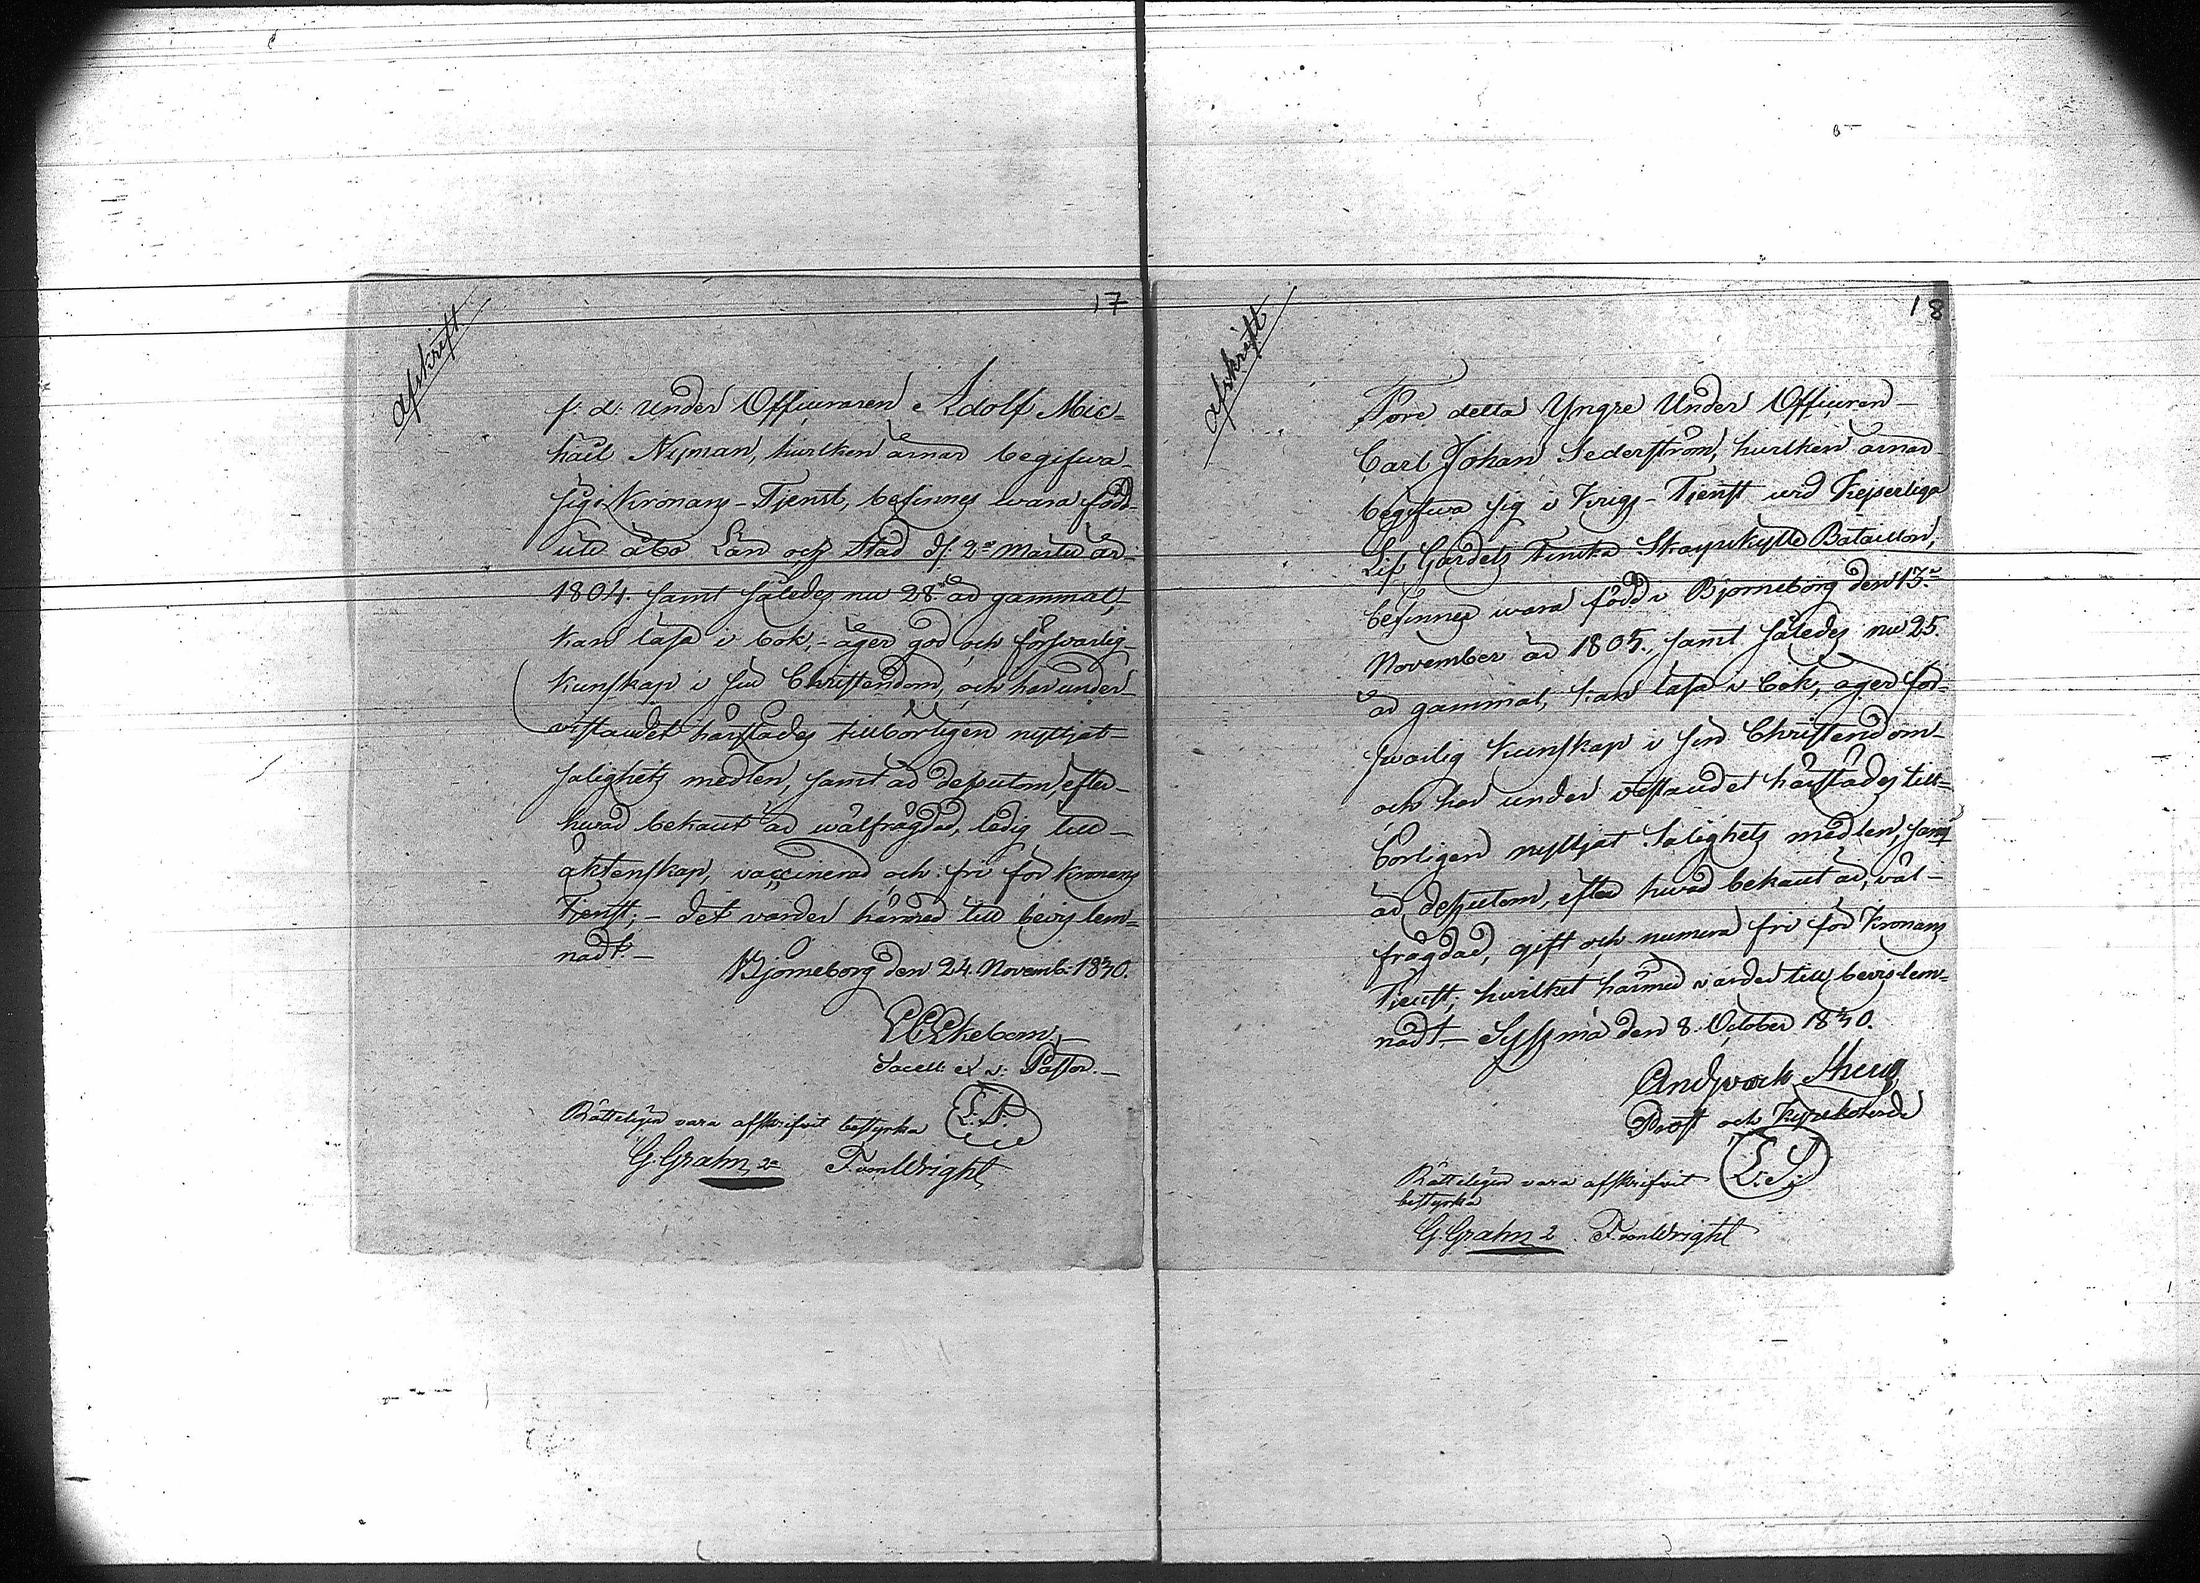 17
Afskrift
f: d: Under Officeraren Adolf Mic-
haël Nyman, hvilken ärnar begifwa
sig i Kronans-Tjenst, befinnes wara född
uti Åbo Län och Stad d: 2e Martii år
1804. samt således nu 28 år gammal,
kan läsa i bok,- äger god och försvarlig
kunskap i sin Christendom, och har under
vistandet härstädes tillbörligen nyttjat
salighets medlen, samt är dessutom, efter
hwad bekant är wälfrägdad, ledig till
äktenskap, vaccinerad och fri för Kronans
Tjenst; - det varder härmed till bevis lem=
nadt. -
Björneborg den 24. Novemb: 1830.
Ekebom
Sacell: et v: Pastor. -
Rätteligen vara afskrifvit bestyrka
L.S.
G. Grahn 2e F. von Wright
18
Afskrift
Före detta Yngre Under Officeren
Carl Johan Sederström, hvilken ärnar
begifwa sig i Krigs-Tjenst wid Kejserliga
Lif Gardets Finska Skarpskytte Bataillon,
befinnes wara född i Björneborg den 13e
November år 1805., samt således nu 25.
år gammal, kan läsa i bok, äger för=
swarlig kunskap i sin Christendom
och har under vistandet härstädes till=
börligen nyttjat Salighets medlen, samt
är dessutom, efter hwad bekant är, väl-
frägdad, gift och numera fri för Kronans
Tjenst; hvilket härmed varder till bevis lem=
nadt. - Sysmä den 8. October 1830.
Prost och Kyrkoherde
L.S.
Rätteligen vara afskrifvit
bestyrka
G. Grahn 2. F. von Wright